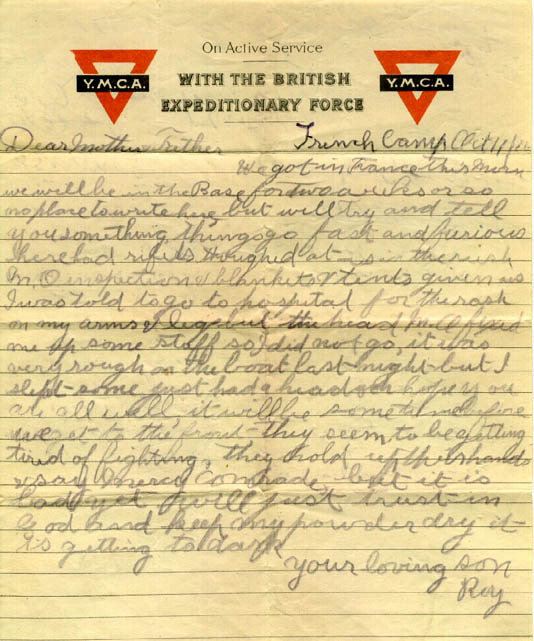 On Active Service
Y.M.C.A. WITH THE BRITISH Y.M.C.A.
EXPEDITIONARY FORCE
Dear Mother & Father French Camp Oct 11/16
We got in France this morn
we will be in the Base for two weeks or so
no place to write here but will try and tell
you something things go fast and furious
here had rifles at us in the
M.O inspection & blankets & tents given us
I was told to go to hospital for the rash
on my arms & legs but the head M.O fixed
me up some stuff so I did not go, it was
very rough on the boat last night but I
slept some just had a head hope you
are all well it will be some time before
we get to the front they seem to be getting
tired of fighting, they hold up their hands
& say Mercy Comrade, but it is
bad yet I will just trust in
God and keep my powder dry it
is getting to dark
your loving son
Roy